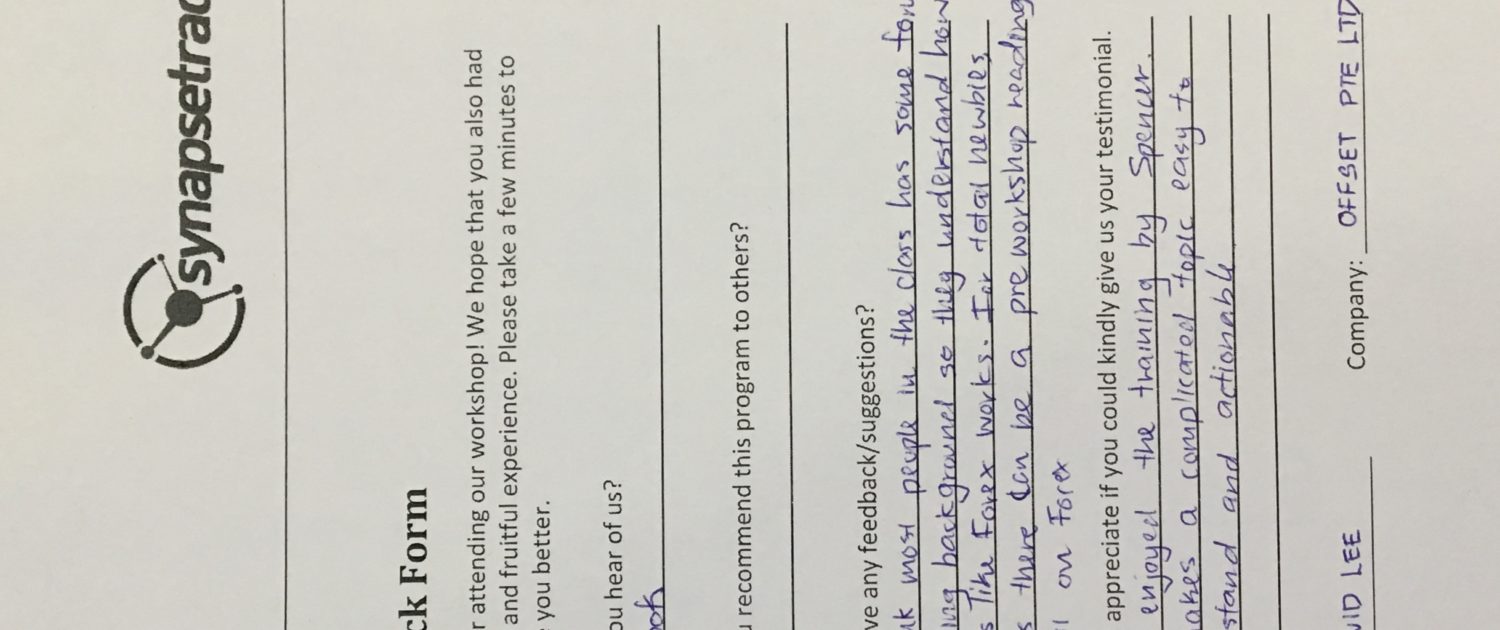 synapsetrad
ck Form
r attending our workshop! We hope that you also had
and fruitful experience. Please take a few minutes to
you better.
ou hear of us?
ook
u recommend this program to others?
ve any feedback/suggestions?
nk most people in the class has some
ing background so they understand how
s like Forex works. For total newbies,
s there can be a pre workshop reading
on Forex
appreciate if you could kindly give us your testimonial.
enjoyed the training by Spencer.
akes a complicated topic easy to
stand and actionable
VID LEE Company: OFFSET PTE LTD